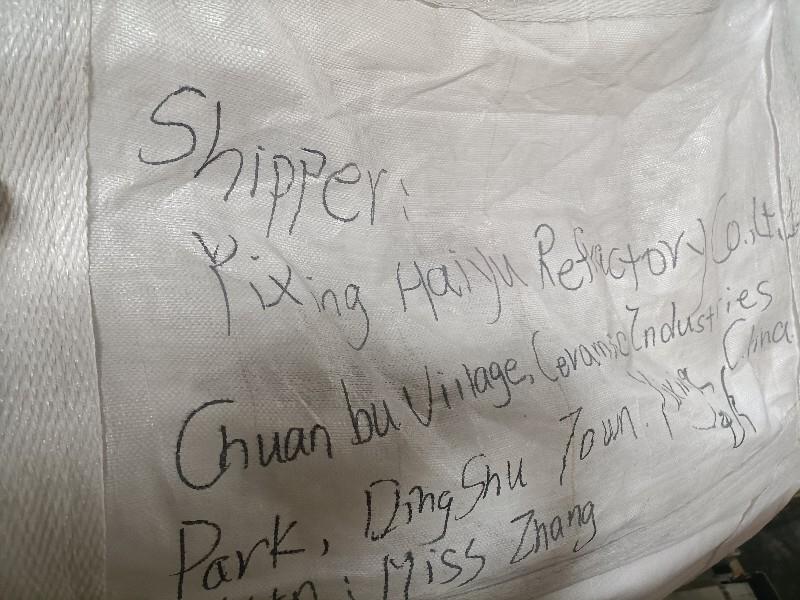 Shipper:
Yixing Haiyu Refractory Co., Ltd
Chuan bu Village, Ceramic Industries
Park, DingShu Town. Yixing China
: Miss Zhang